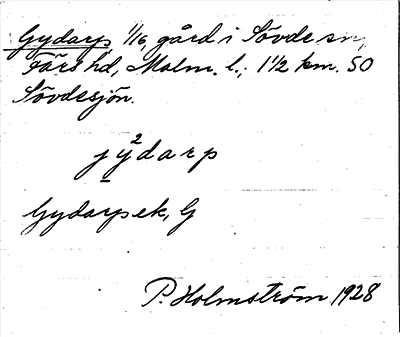 Gydarp 1/16, gård i Sövde sn,
Färs hd, Malm. l.; 1 1/2 km. SO
Sövdesjön.
jy²darp
Gydarps ek, G
P. Holmström 1928